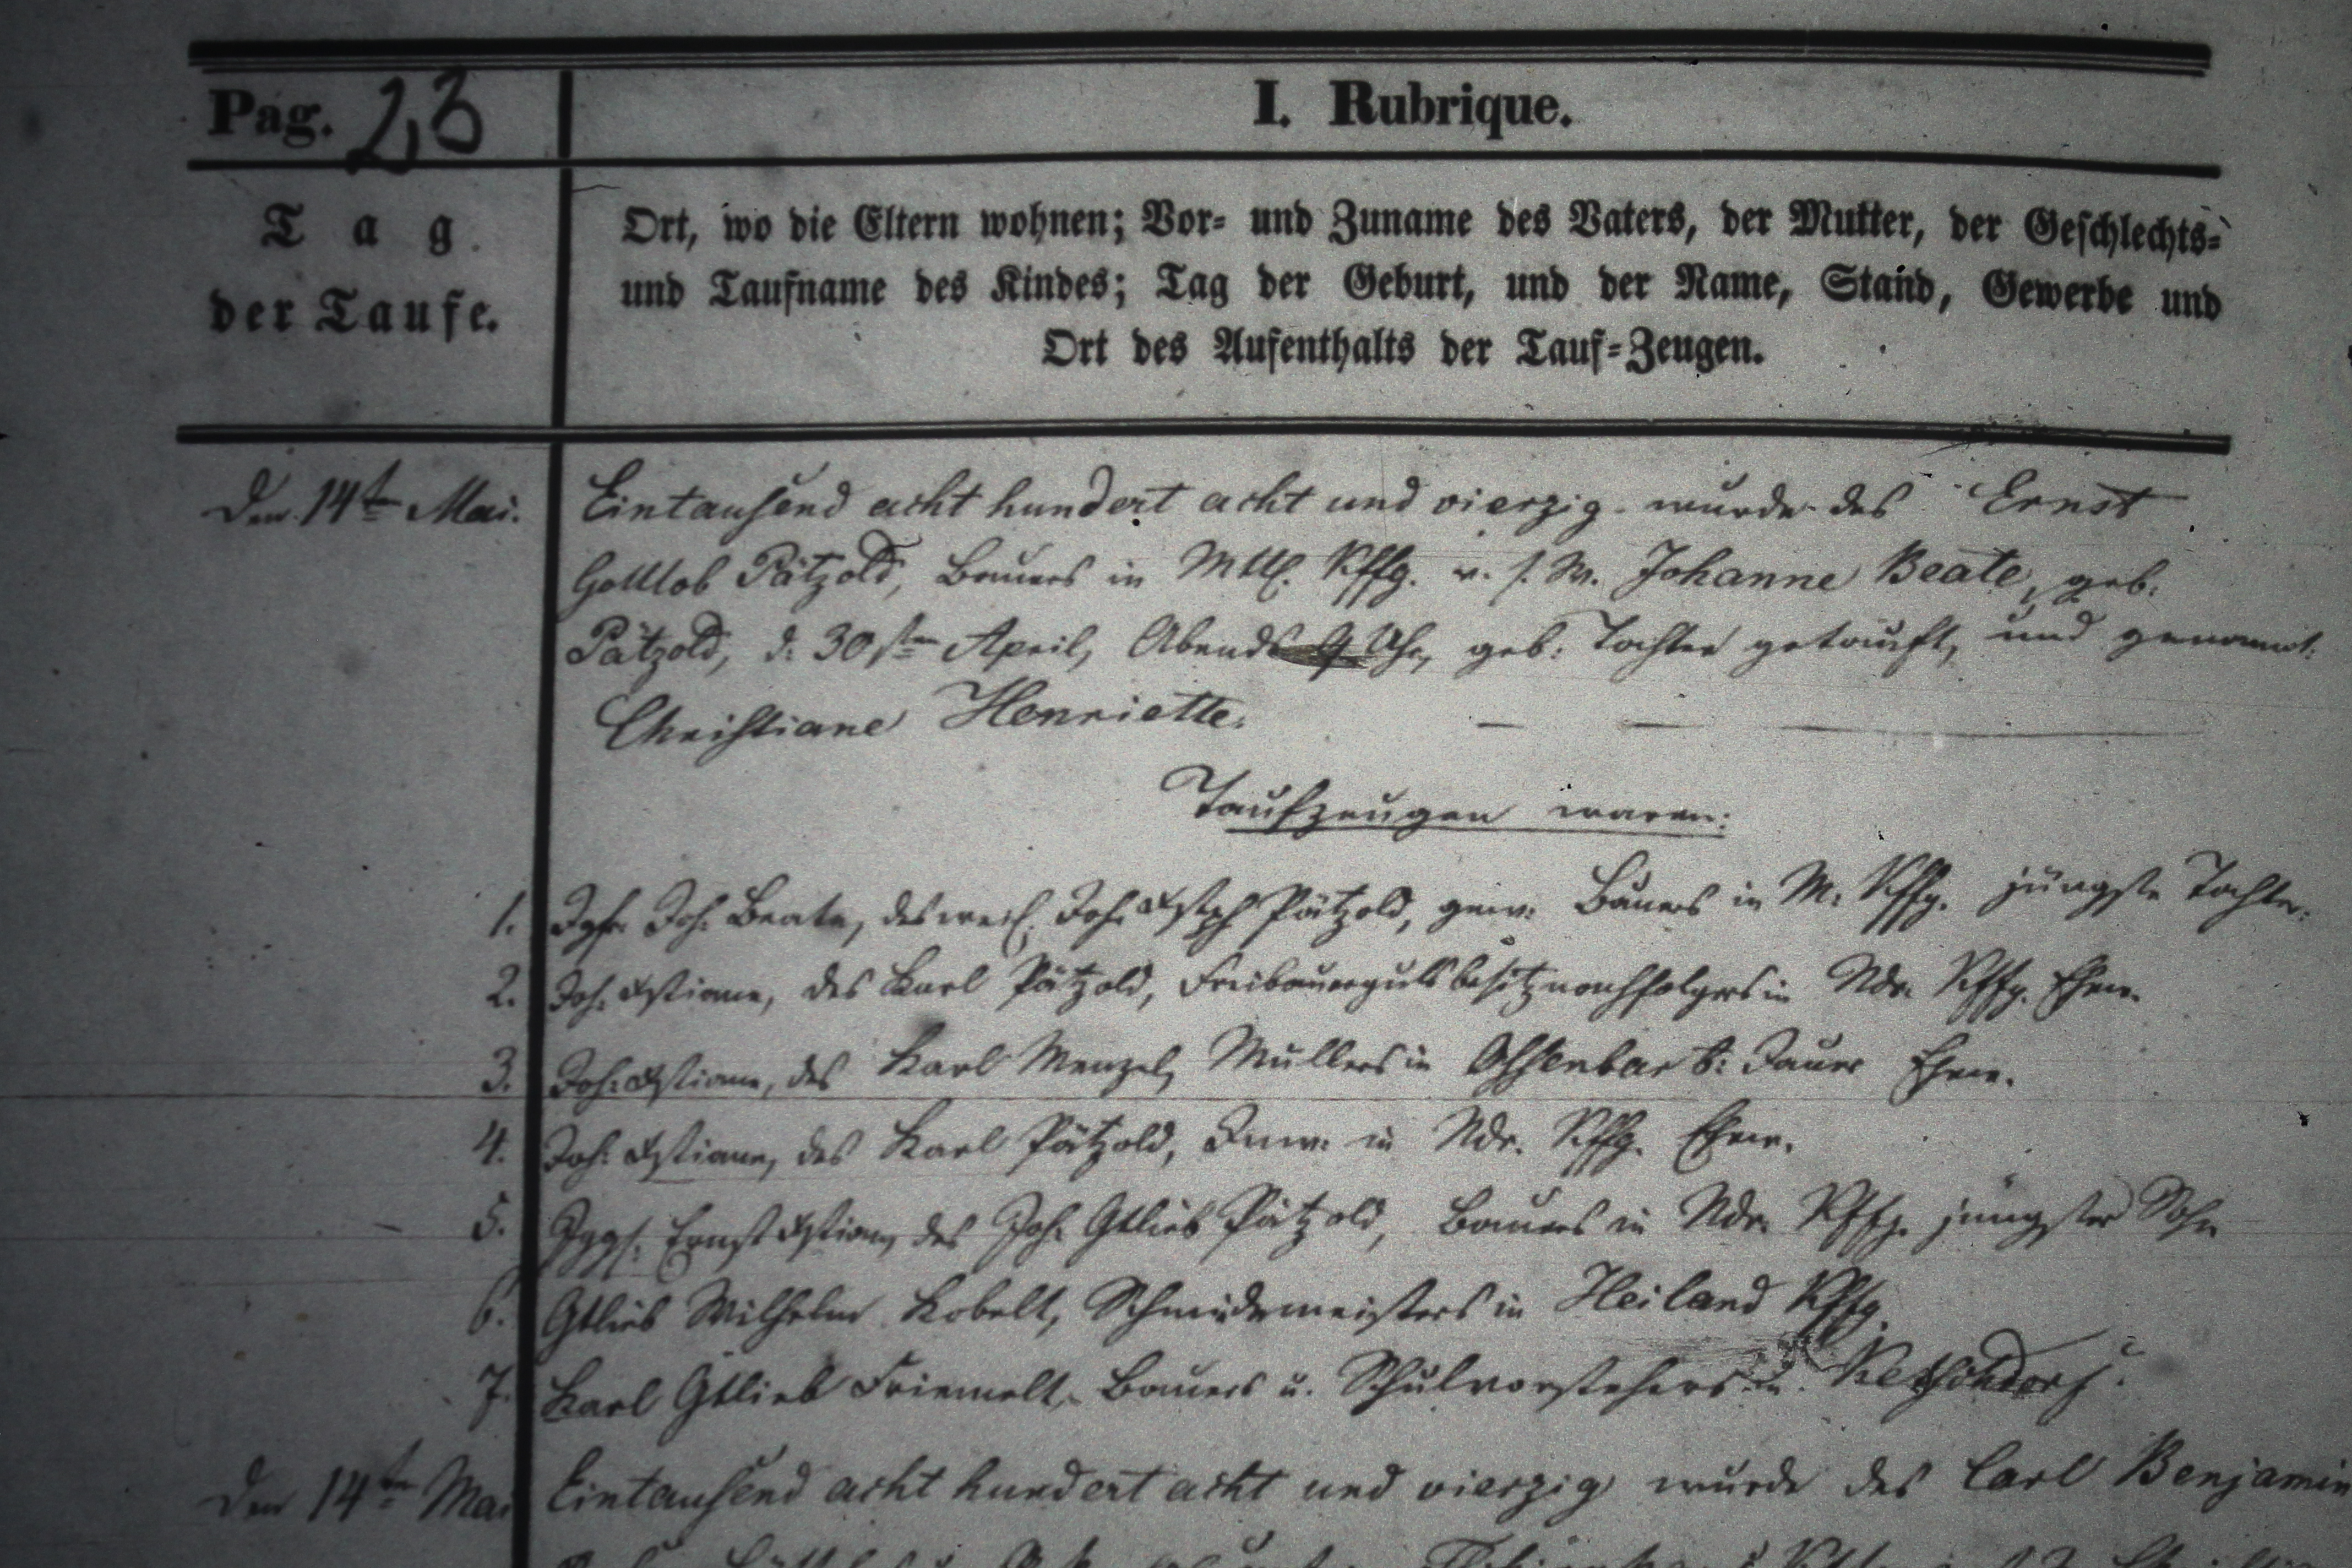 Pag. 23
I. Rubrique.
Tag
der Taufe.
Ort, wo die Eltern wohnen; Vor- und Zuname des Vaters, der Mutter, der Geschlechts-
und Taufname des Kindes; Tag der Geburt, und der Name, Stand, Gewerbe und
Ort des Aufenthalts der Tauf-Zeugen.
Den 14ten Mai. Eintausend acht hundert acht und vierzig wurde des Ernst
Gottlob Pätzold, Bauers in Mttl. Kffg. u. s. W. Johanne Beate, geb.
Pätzold, d. 30sten April, Abends 9 Uhr, geb. Tochter getauft, und genannt:
Christiane Henriette.
Taufzeugen waren:
1. Jgfr. Joh. Beate, des weil. Joh. Xstph Pätzold, gew. Bauers in M. Kffg. jüngste Tochter.
2. Joh. Xstiane, des Karl Pätzold, Freibauergutsbesitznachfolgers in Ndr. Kffg. Ehew.
3. Joh. Xstiane, des Karl Menzel, Müllers in b. Jauer Ehew.
4. Joh. Xstiane, des Karl Pätzold, Inw. in Ndr. Kffg. Ehew.
5. Jggs. Ernst Xstian, des Joh. Gtlieb Pätzold, Bauers in Ndr. Kffg. jüngster Sohn
6. Gtlieb Wilhelm Kobelt, Schmiedemeisters in Heiland Kffg.
7. Karl Gtlieb Friemelt, Bauers u. Schulvorstehers in Ketschdorf.
Den 14ten Mai Eintausend acht hundert acht und vierzig wurde des Carl Benjamin